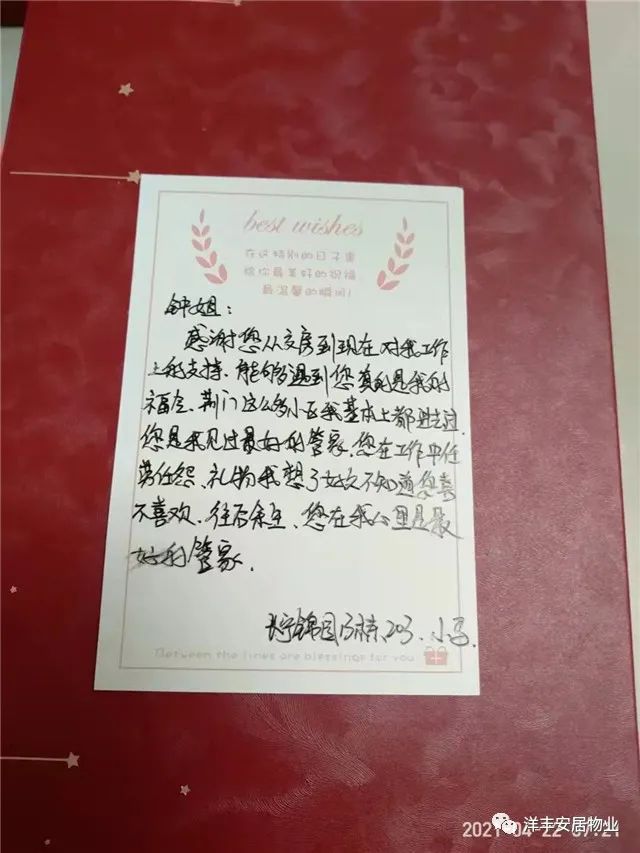 best wishes
在这特别的日子里
给你最美好的祝福
最温馨的瞬间!
钟姐:
感谢您从交房到现在对我工作
上的支持、能够遇到您真的是我的
福气、荆门这么多小区我基本上都进去过
您是我见过最好的管家、您在工作中任
劳任怨、礼物我想了好久不知道您喜
不喜欢、往后余生、您在我心里是最
好的管家.
锦园 203、小马.
Between the lines are blessings for you
2021-04-22 07:21
洋丰安居物业